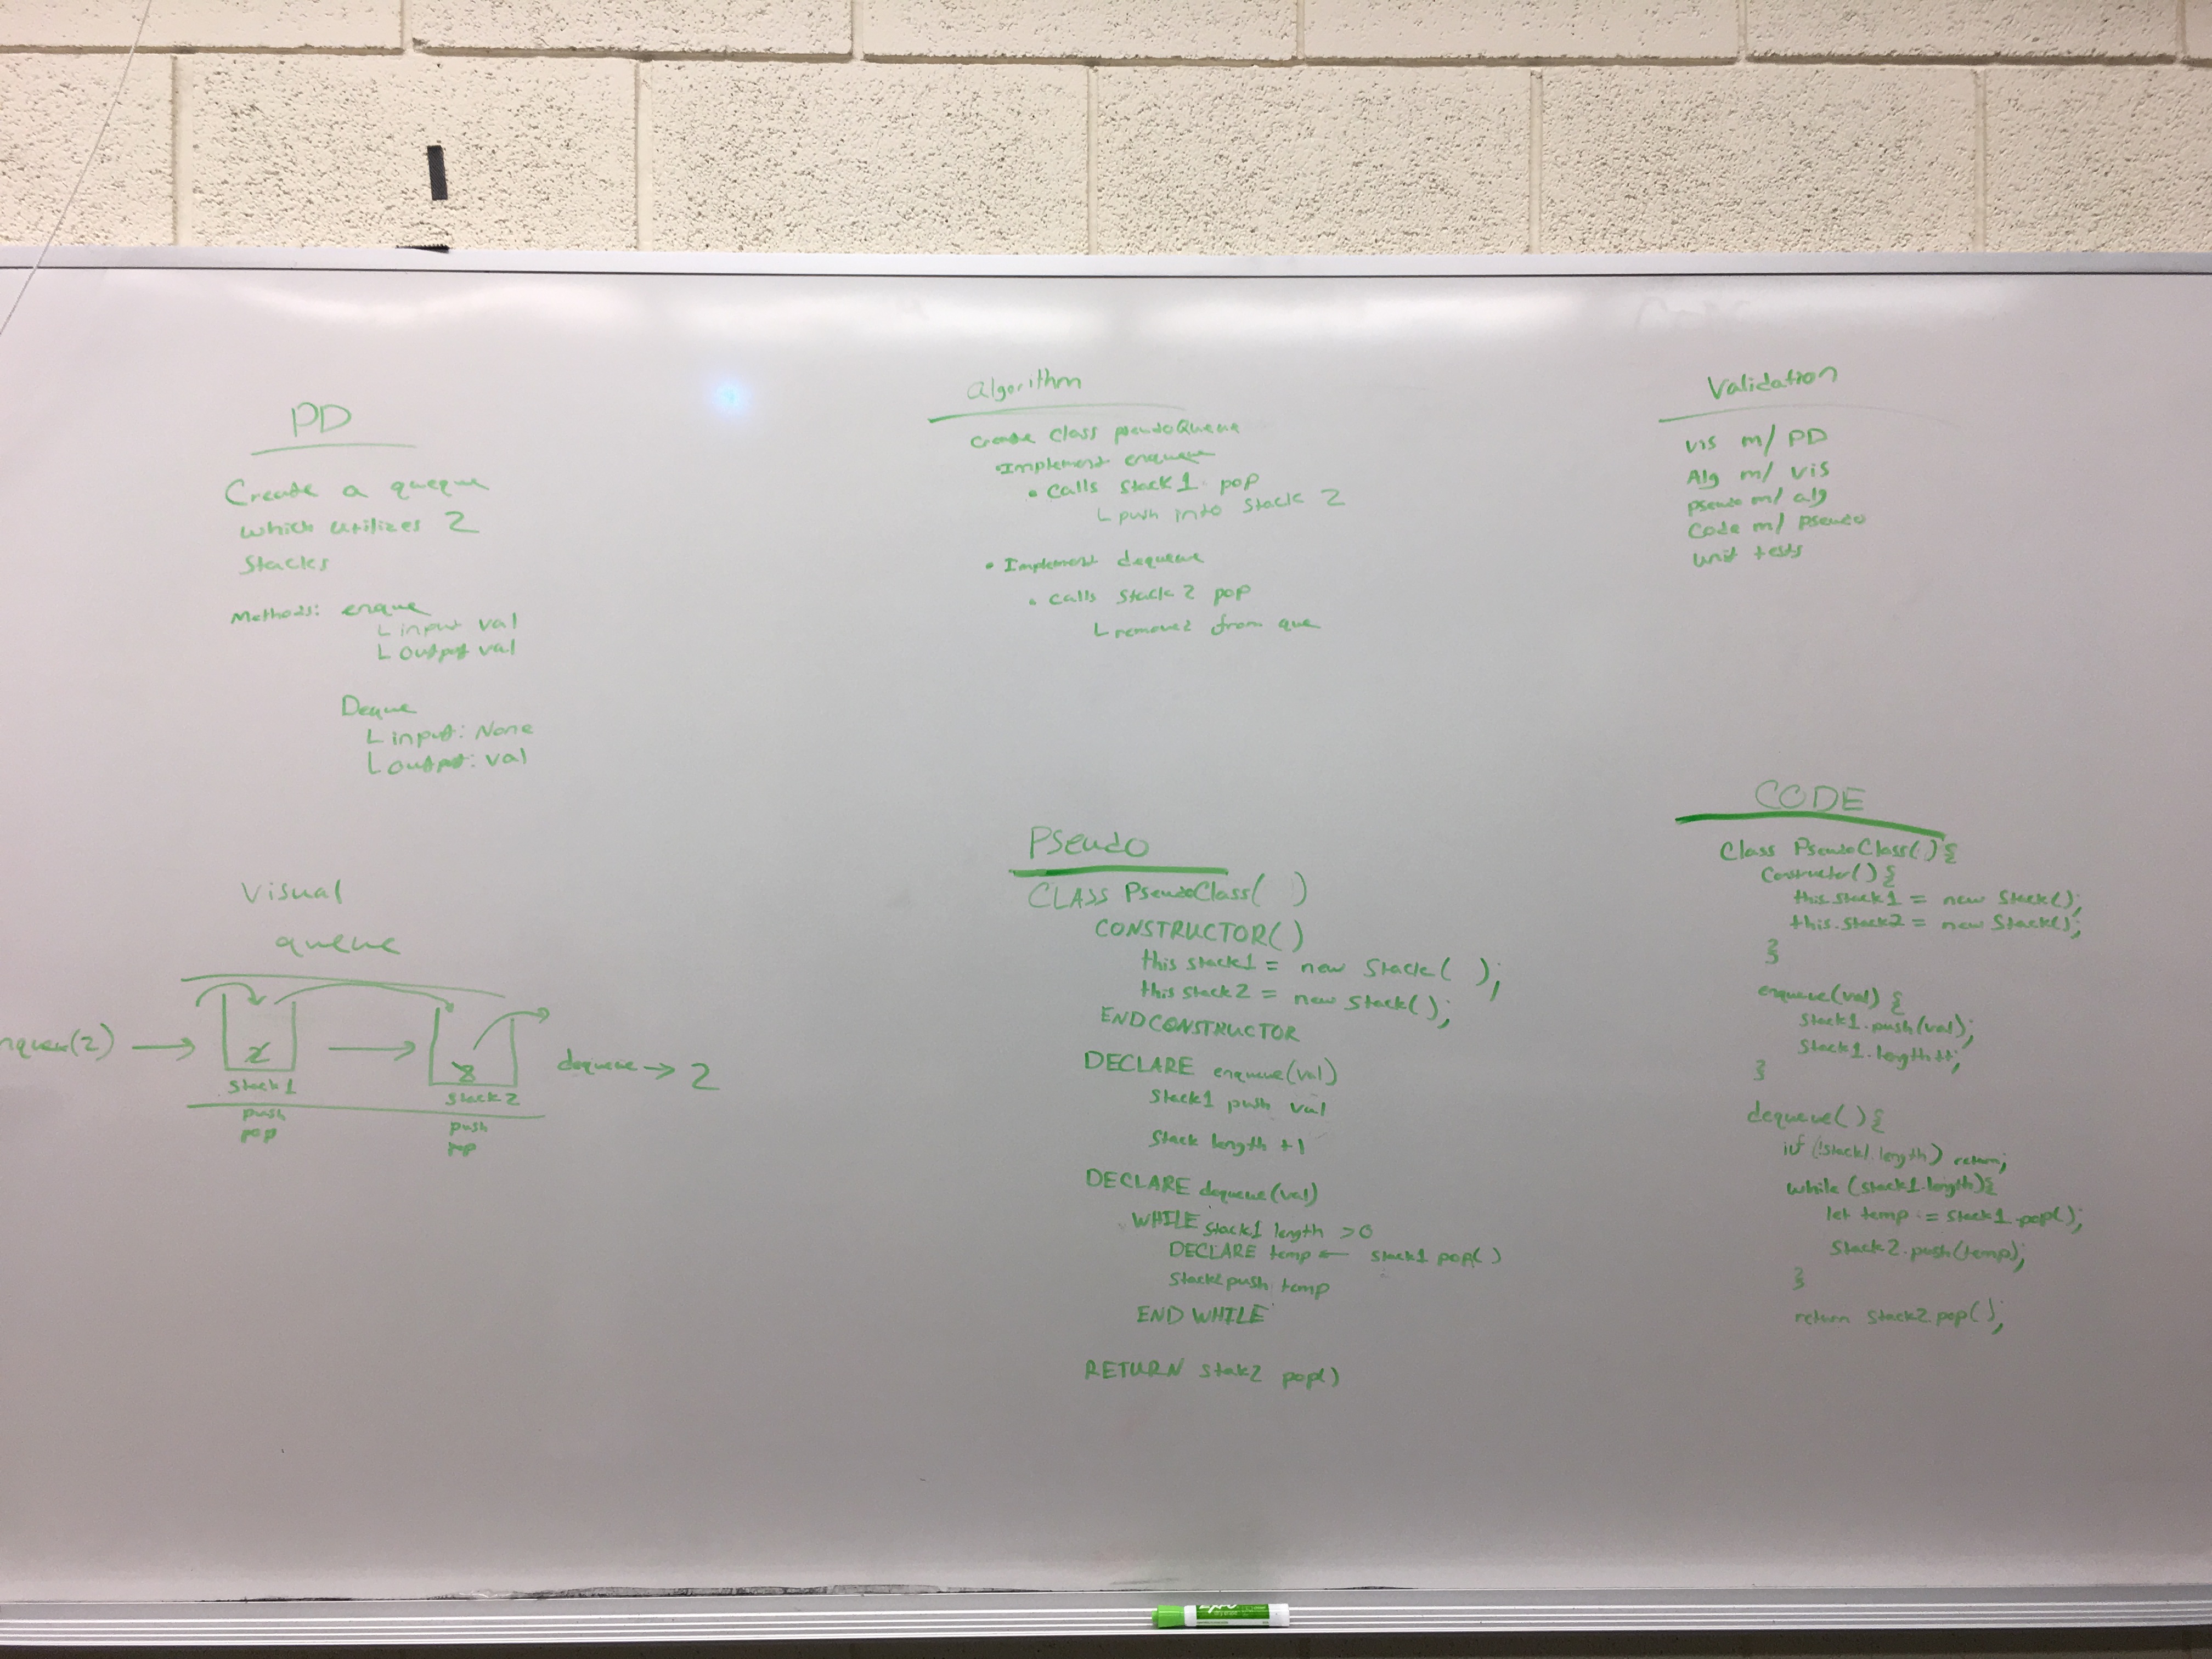 PD
Create a queque
which utilizes 2
Stacks
Methods: enque
L input val
L output val
Deque
L input: None
L output: val
Visual
queue
nqueue(2)
2
stack1
push
pop
stack2
push
pop
dequeue → 2
Algorithm
Create class pseudoQueue
•Implement enqueue
• calls stack1 pop
L push into stack 2
• Implement dequeue
• calls stack 2 pop
L removes from que
Pseudo
CLASS PseudoClass( )
CONSTRUCTOR()
this stack1 = new Stack( );
this stack2 = new Stack();
ENDCONSTRUCTOR
DECLARE enqueue(val)
stack1 push val
Stack length +1
DECLARE dequeue(val)
WHILE stack1 length >0
DECLARE temp ← stack1 pop()
Stack2 push temp
END WHILE
RETURN stak2 pop()
Validation
Vis m/ PD
Alg m/ vis
pseudo m/ alg
Code m/ pseudo
unit tests
CODE
Class PseudoClass() {
Constructor() {
this.stack1 = new Stack();
this.stack2 = new Stack();
}
enqueue(val) {
stack1.push(val);
Stack1.length++;
}
dequeue() {
if (!stack1.length) return;
while (stack1.length){
let temp = stack1.pop();
Stack2.push(temp);
}
return stack2.pop();